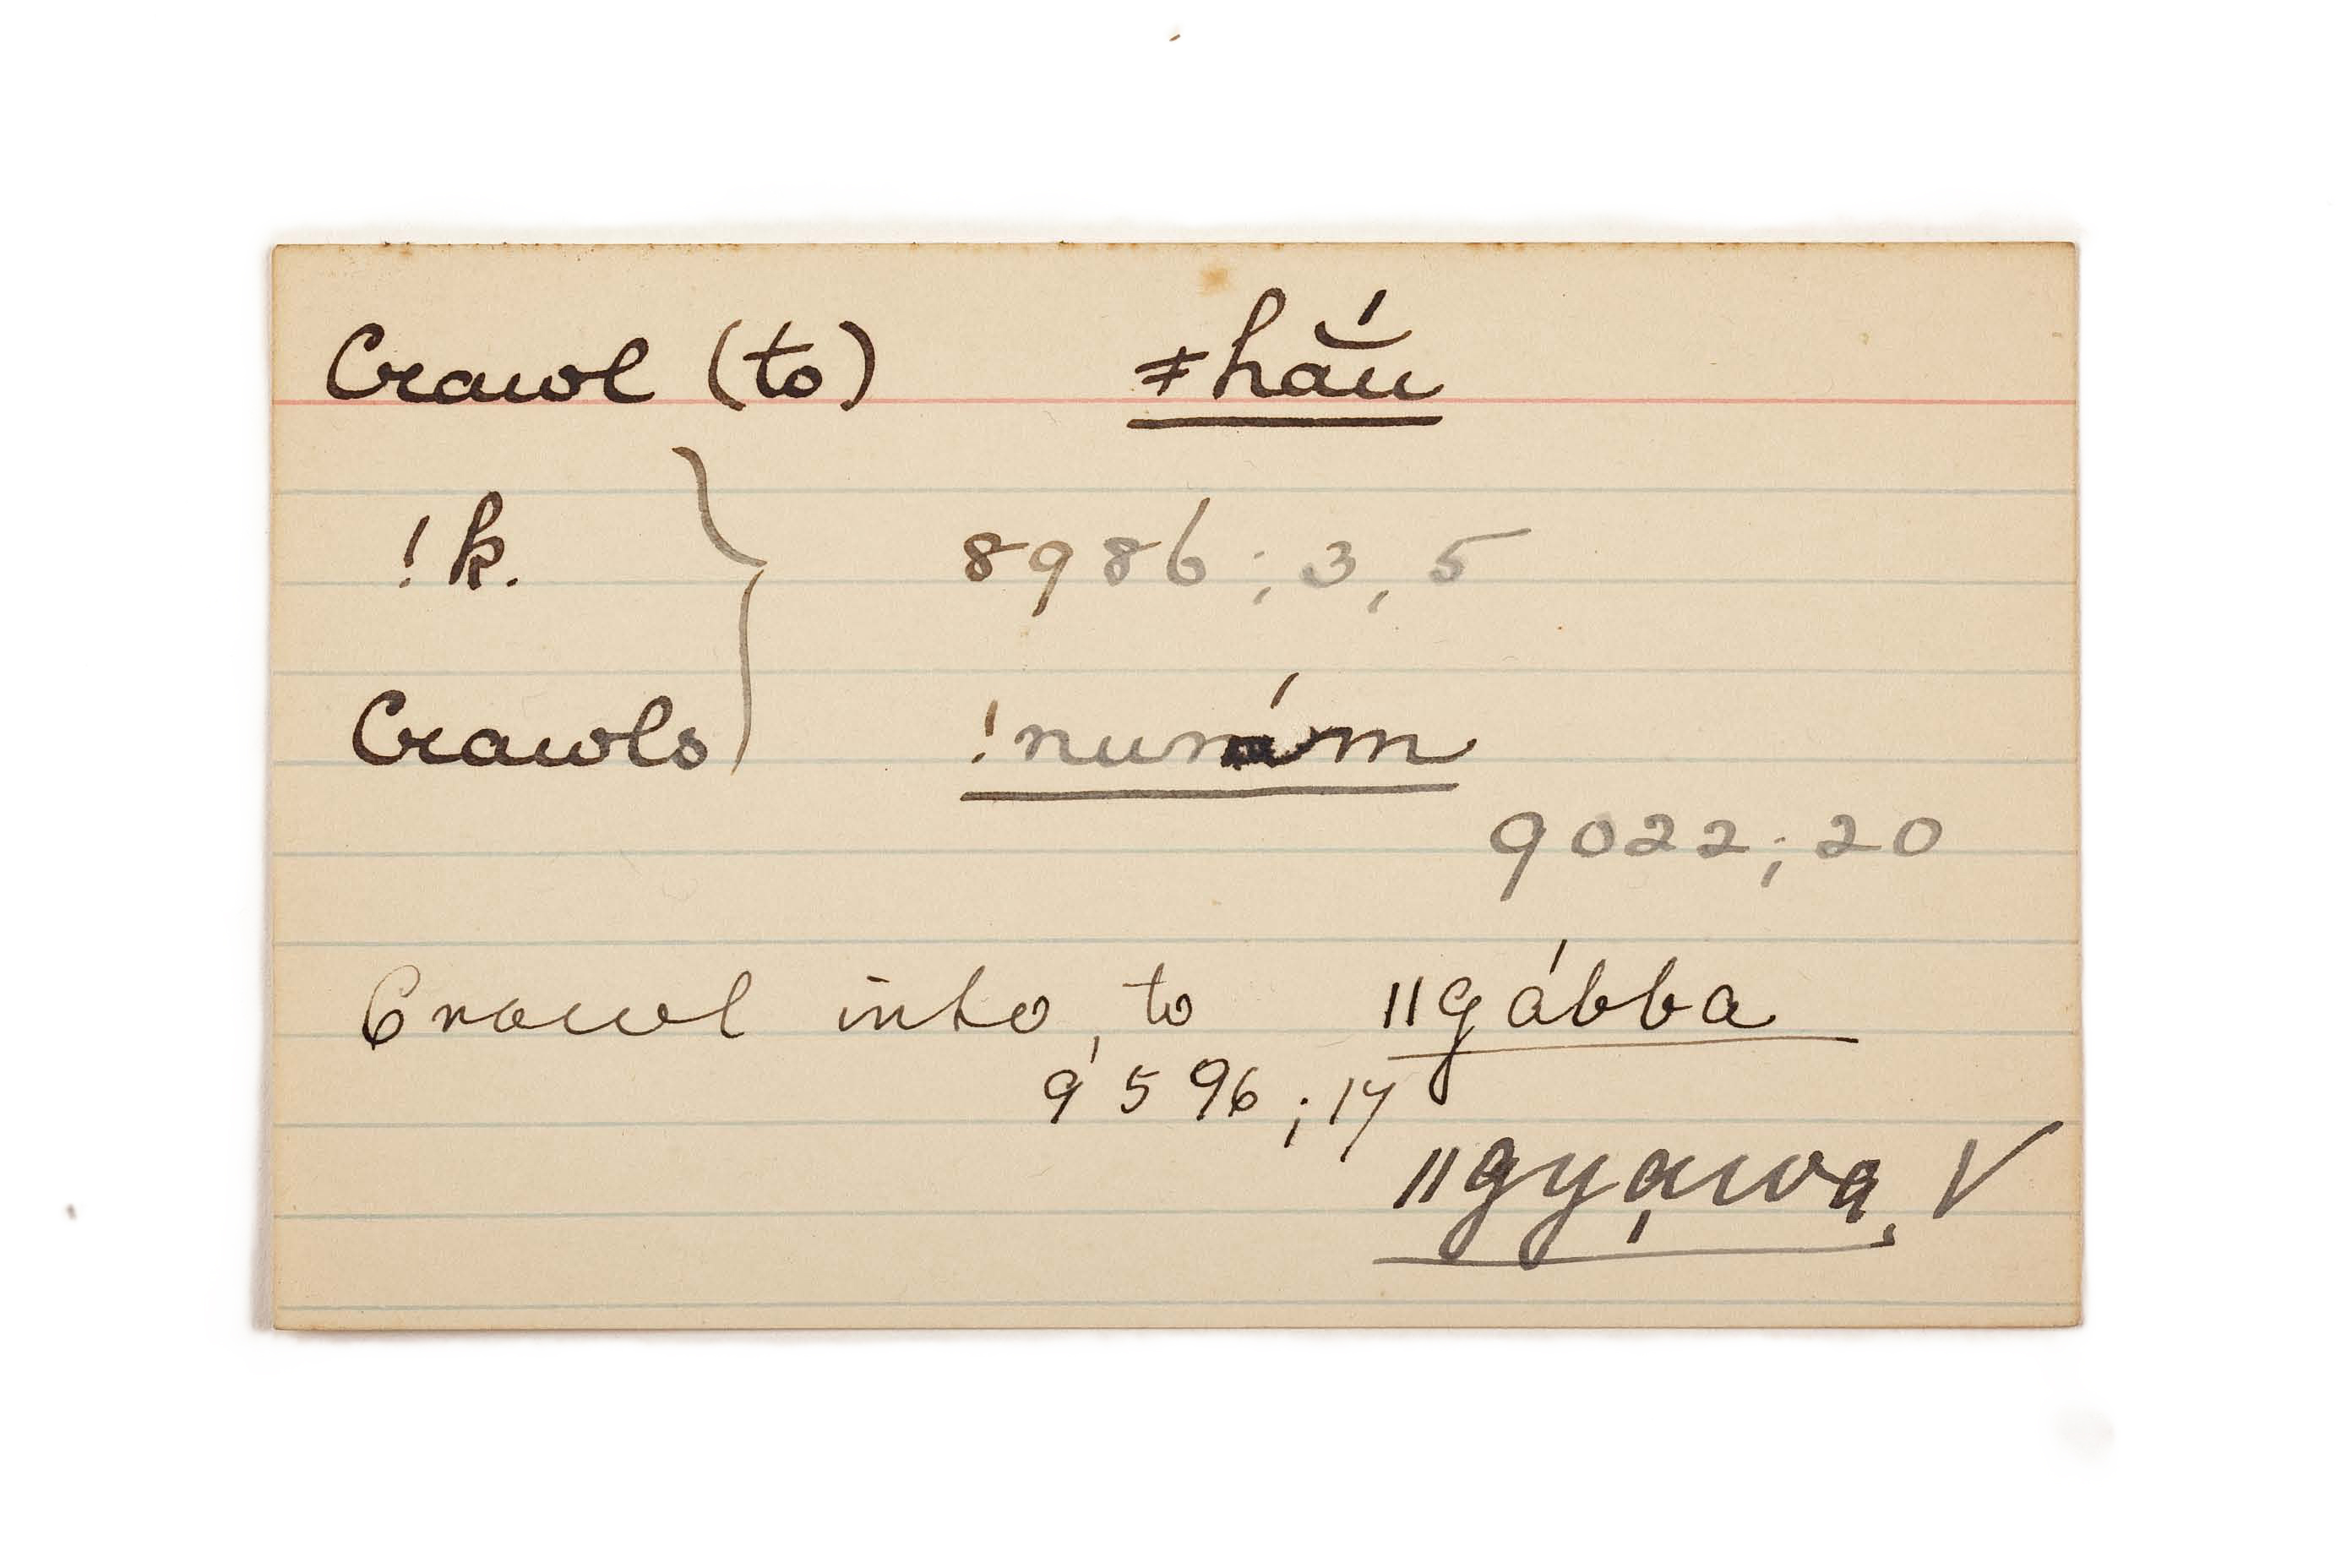 Crawl (to) ≠hắu
!k. } 8986; 3, 5
Crawls !nuńm
9022; 20
Crawl into, to ǁgábba
9596; 17
ǁgyạwạ, V